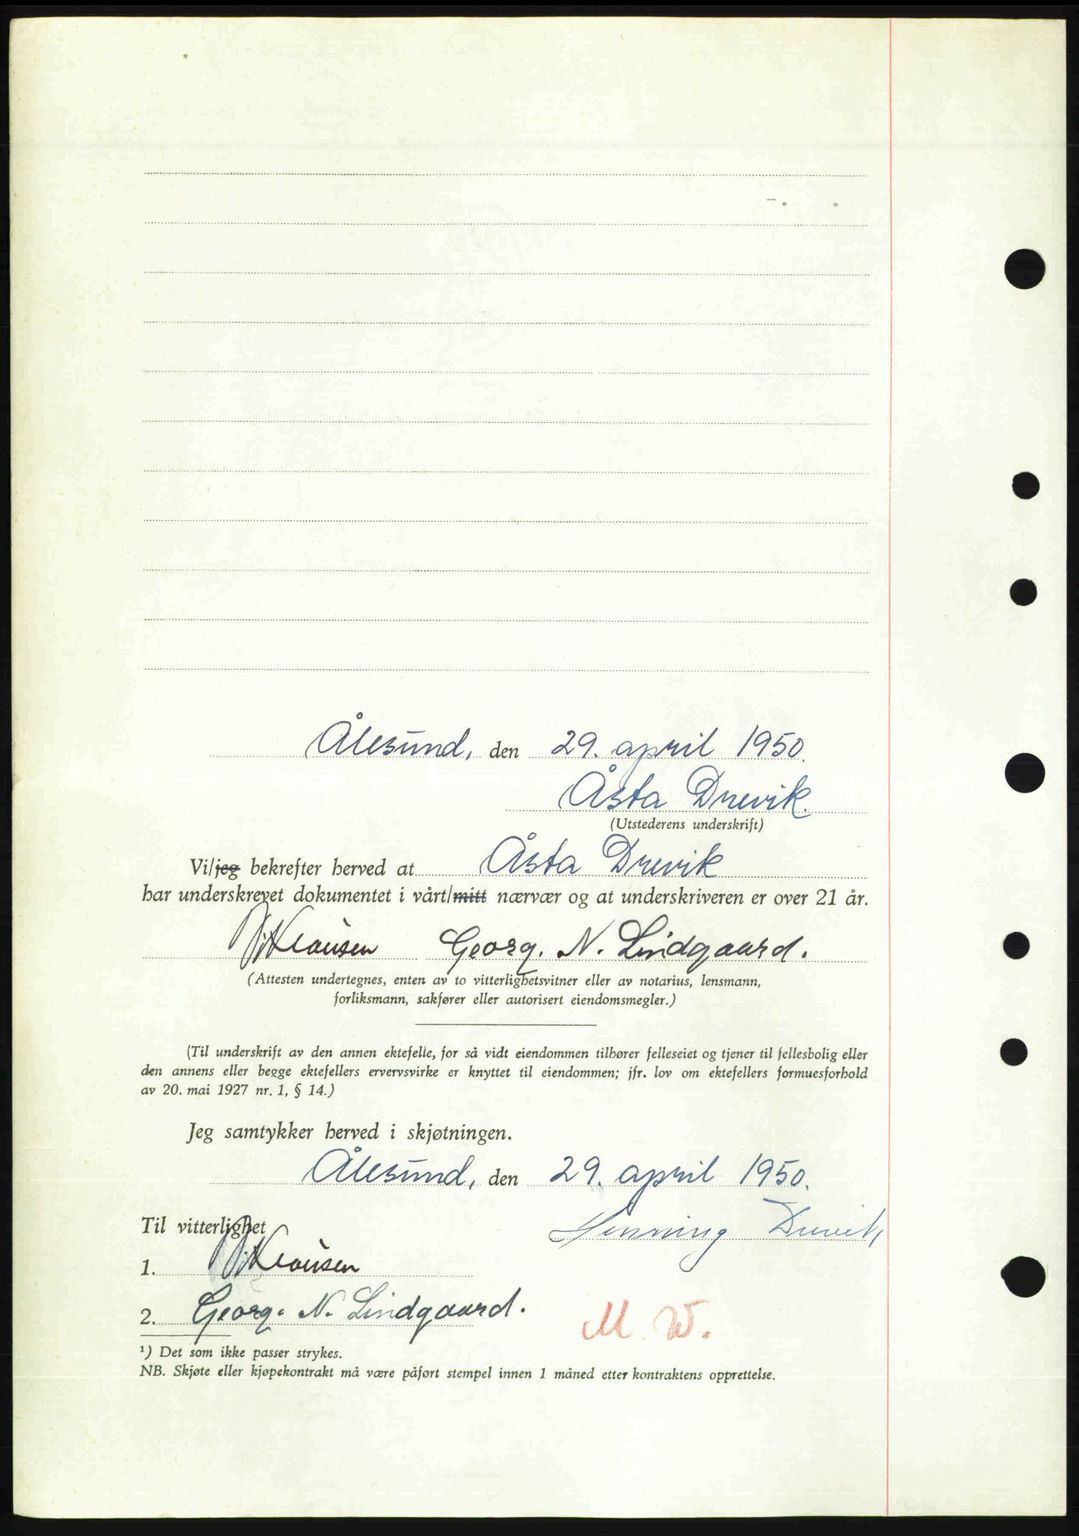 Ålesund, den 29. april 1950.
Åsta Drevik.
(Utstederens underskrift)
Vi/jeg bekrefter herved at Åsta Drevik
har underskrevet dokumentet i vårt/mitt nærvær og at underskriveren er over 21 år.
Klausen Georg. N. Lindgaard.
(Attesten undertegnes, enten av to vitterlighetsvitner eller av notarius, lensmann,
forliksmann, sakfører eller autorisert eiendomsmegler.)
(Til underskrift av den annen ektefelle, for så vidt eiendommen tilhører felleseiet og tjener til fellesbolig eller
den annens eller begge ektefellers ervervsvirke er knyttet til eiendommen; jfr. lov om ektefellers formuesforhold
av 20. mai 1927 nr. 1, § 14.)
Jeg samtykker herved i skjøtningen.
Ålesund, den 29. april 1950.
Til vitterlighet Henning Drevik,
1. Klausen
2. Georg. N. Lindgaard.
M. W.
¹) Det som ikke passer strykes.
NB. Skjøte eller kjøpekontrakt må være påført stempel innen 1 måned etter kontraktens opprettelse.